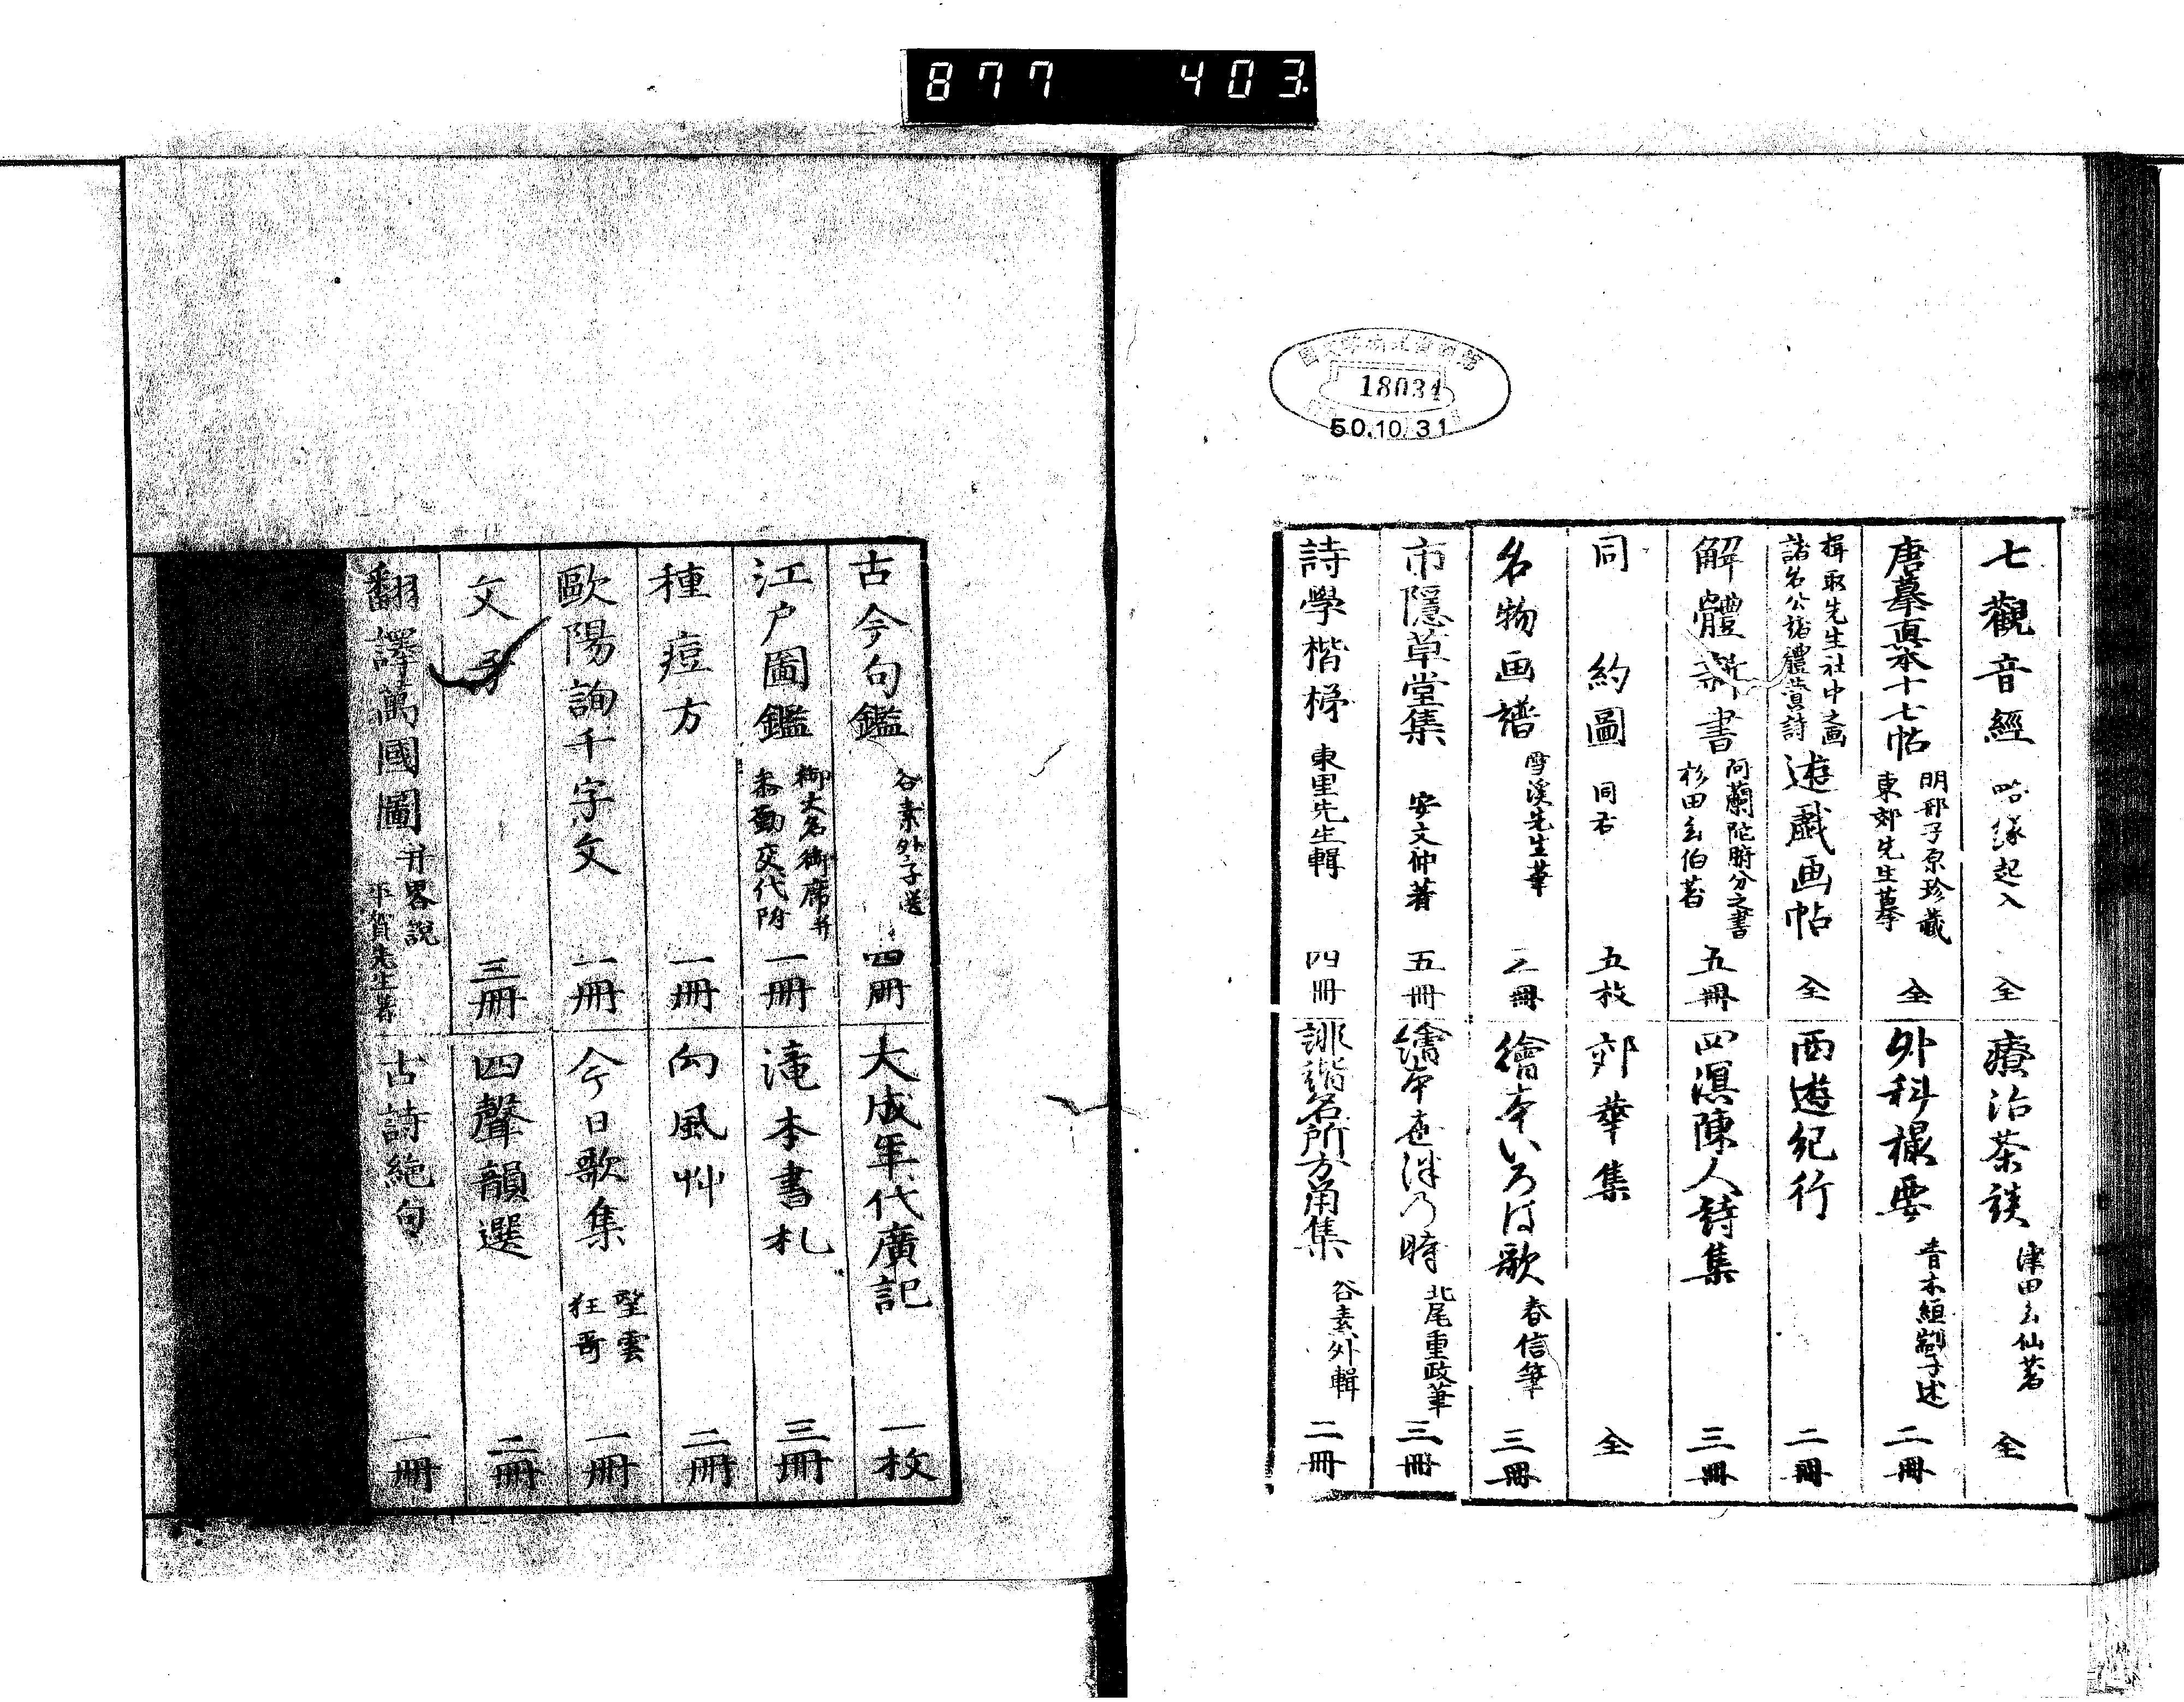 877 403
18034
50.10.31
七觀音經 略縁起入 全
療治茶談 津田玄仙著 全
唐摹真本十七帖 明邢子原珍藏 東郊先生摹 全
外科撮要 青木 子述 二冊
揖取先生社中畵 諸名公 體賛詩 遊戯画帖 全
西遊紀行 二冊
解體新書 阿蘭陀腑分之書 杉田玄伯著 五冊
四溟陳人詩集 三冊
同 約圖 同右 五枚
郊華集 全
名物画譜 雪溪先生筆 三冊
繪本いろは歌 春信筆 三冊
市隱草堂集 安文仲著 五冊
繪本 乃時 北尾重政筆 三冊
詩學楷梯 東里先生輯 四冊
誹諧名所方角集 谷素外輯 二冊
古今句鑑 谷素外子選 四冊
大成年代廣記 一枚
江戸圖鑑 御大名御席并 参勤交代附 一冊
滝本書札 三冊
種痘方 一冊
向風艸 二冊
歐陽詢千字文 一冊
今日歌集 望雲 狂哥 一冊
文 三冊
四聲韻選 二冊
翻譯萬國圖 并畧說 平賀先生著
古詩絶句 一冊